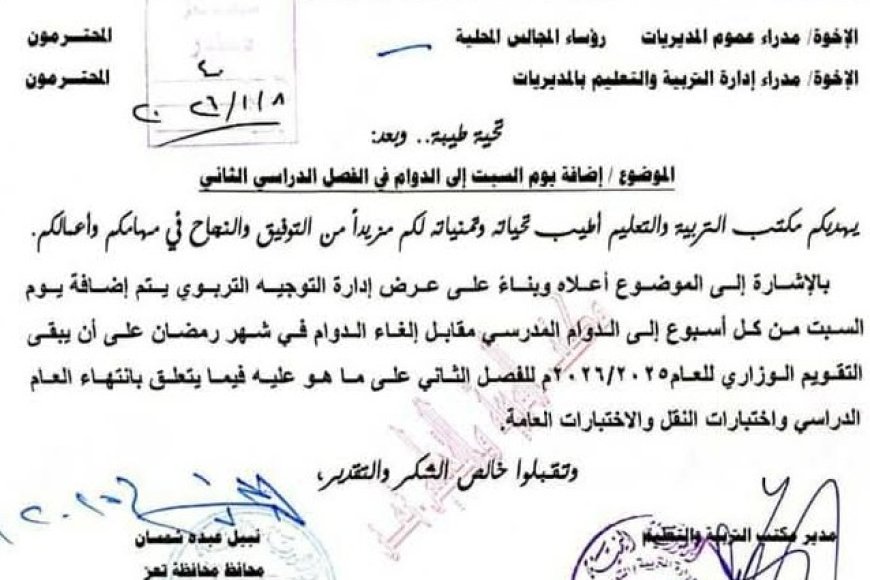 الإخوة/ مدراء عموم المديريات رؤساء المجالس المحلية المحترمون
الإخوة/ مدراء إدارة التربية والتعليم بالمديريات المحترمون
صادر
٢٠٢٦/١/٨
تحية طيبة.. وبعد:
الموضوع / إضافة يوم السبت إلى الدوام في الفصل الدراسي الثاني
يهديكم مكتب التربية والتعليم أطيب تحياته وتمنياته لكم مزيداً من التوفيق والنجاح في مهامكم وأعمالكم.
بالإشارة إلى الموضوع أعلاه وبناءً على عرض إدارة التوجيه التربوي يتم إضافة يوم
السبت من كل أسبوع إلى الدوام المدرسي مقابل إلغاء الدوام في شهر رمضان على أن يبقى
التقويم الوزاري للعام٢٠٢٦/٢٠٢٥م للفصل الثاني على ما هو عليه فيما يتعلق بانتهاء العام
الدراسي واختبارات النقل والاختبارات العامة.
وتقبلوا خالص الشكر والتقدير،
مدير مكتب التربية والتعليم
نبيل عبده شمسان
محافظ محافظة تعز